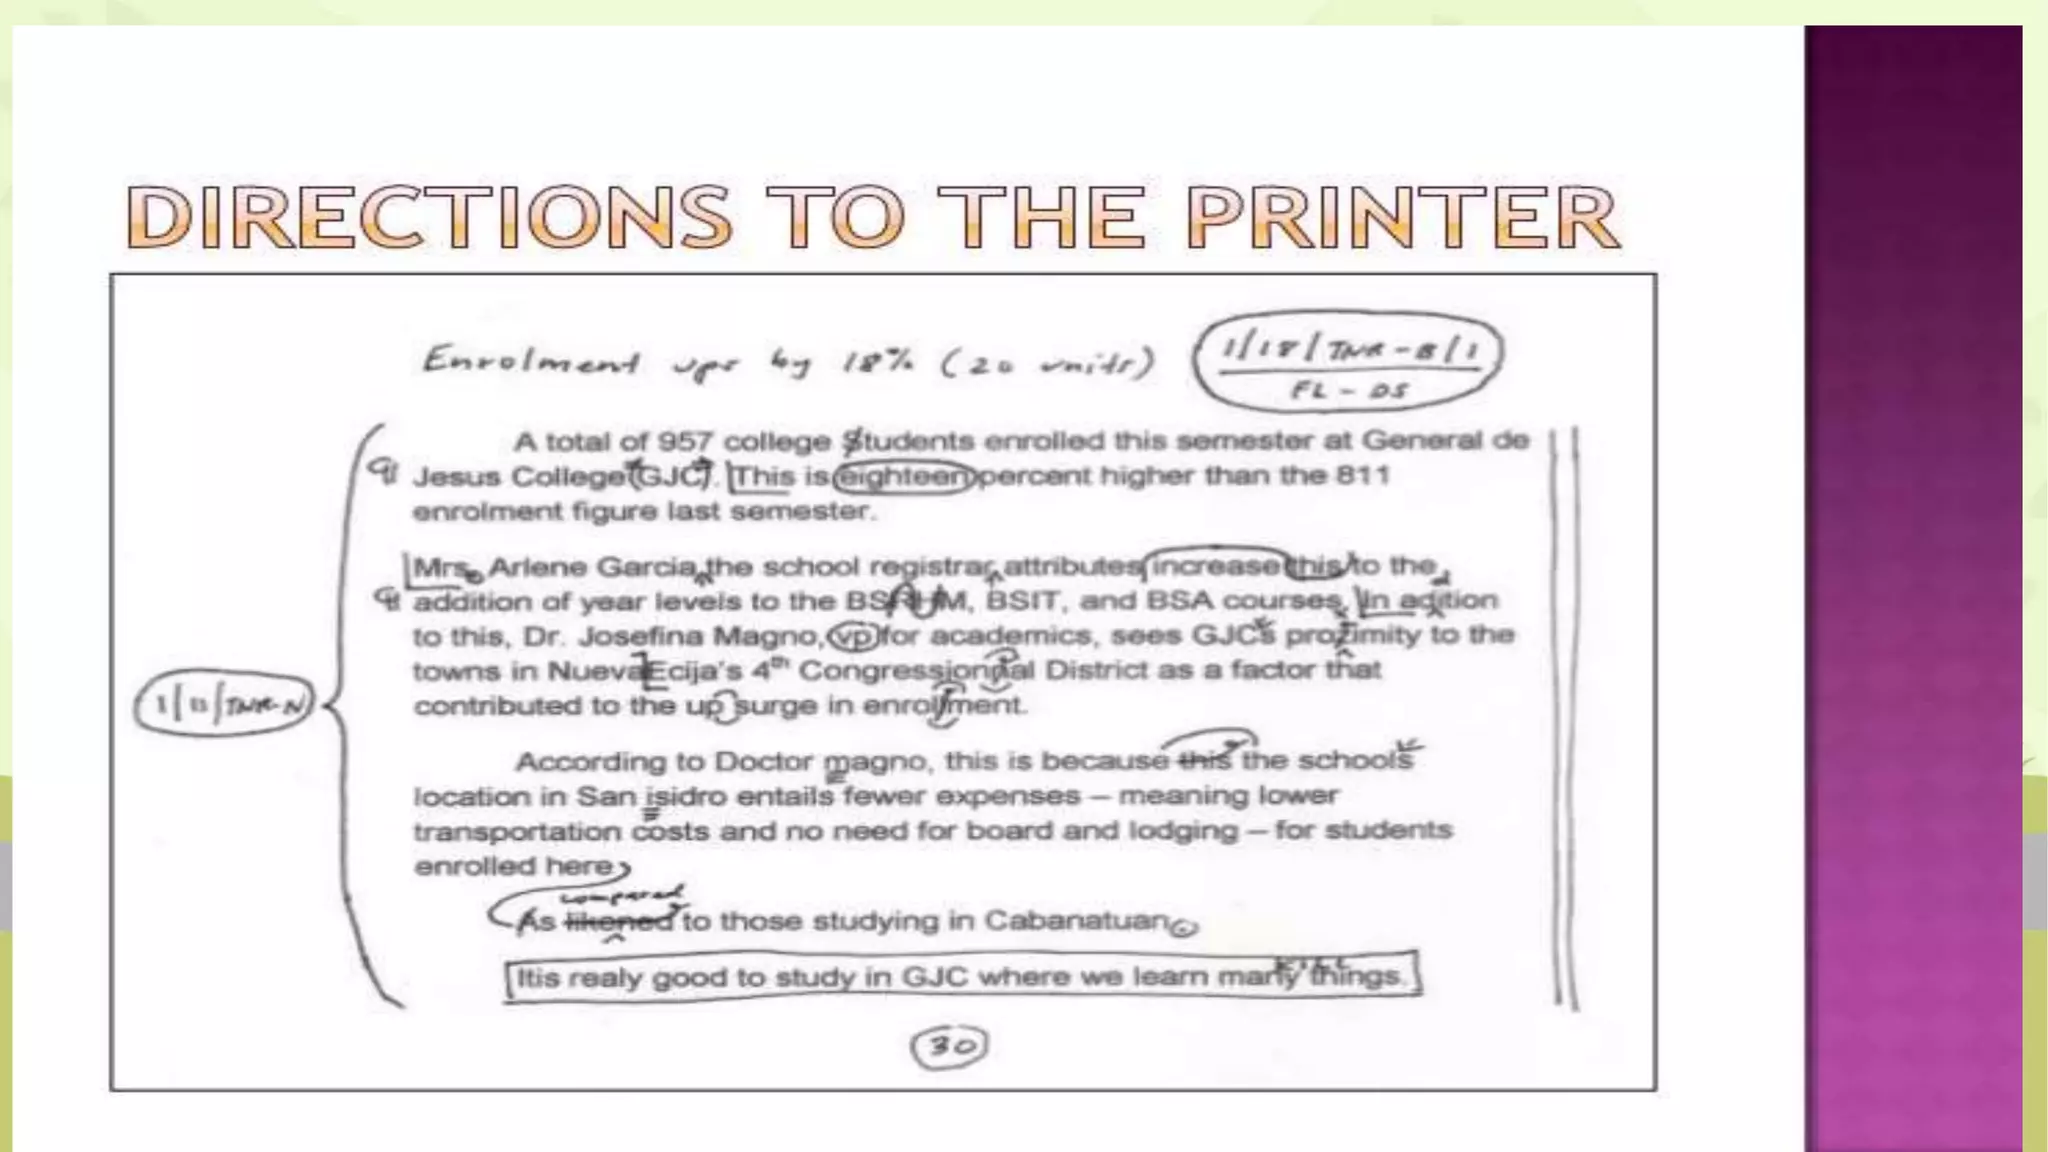 DIRECTIONS TO THE PRINTER
Enrolment ups by 18% (20 units) 1/18/TNR-B/1
FL - DS
A total of 957 college Students enrolled this semester at General de
Jesus College (GJC). This is eighteen percent higher than the 811
enrolment figure last semester.
Mrs. Arlene Garcia, the school registrar, attributes increase this to the
addition of year levels to the BSRHM, BSIT, and BSA courses. In adition
d
to this, Dr. Josefina Magno, vp for academics, sees GJC's to the
towns in Nueva Ecija's 4th Congressionnal District as a factor that
contributed to the up surge in enrollment.
1/11/TNR-N
According to Doctor magno, this is because this the schools
location in San isidro entails fewer expenses – meaning lower
transportation costs and no need for board and lodging – for students
enrolled here
compared
As likened to those studying in Cabanatuan.
KILL
Itis realy good to study in GJC where we learn many things.
30